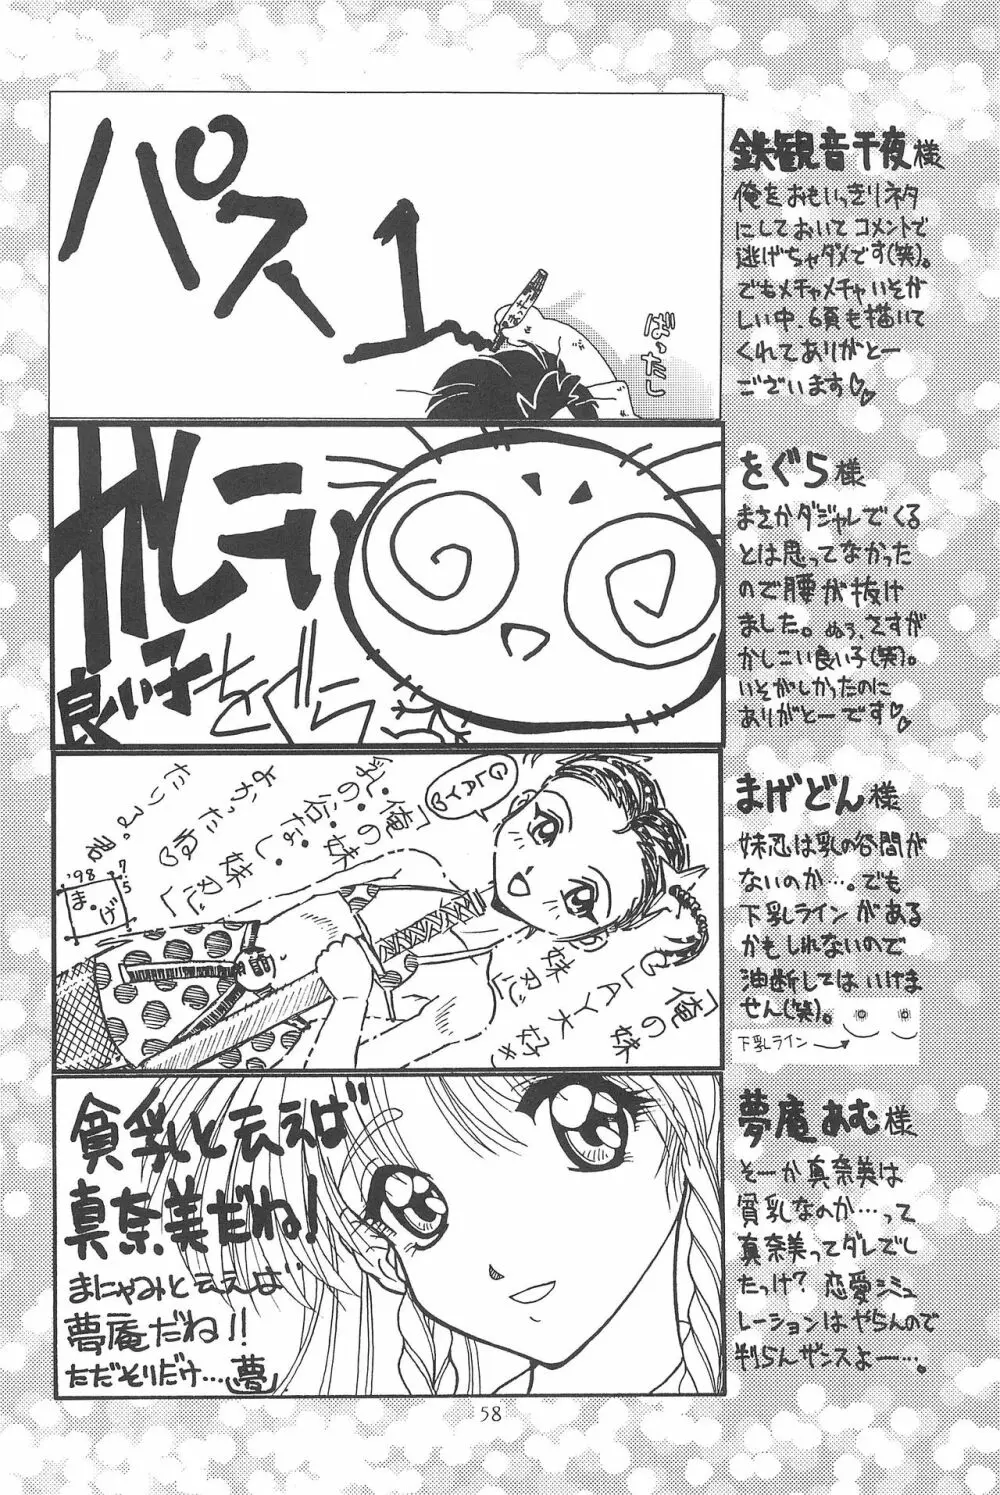 パス1
ばったし
鉄観音千夜様
俺をおもいっきりネタ
にしておいてコメントで
逃げちゃダメです(笑)。
でもメチャメチャいそが
しい中、6頁も描いて
くれてありがとー
ございます♡♡
かしこい
良い子
をぐら
をぐら様
まさかダジャレでくる
とは思ってなかった
ので腰が抜け
ました。ぬぅ、さすが
かしこい良い子(笑)。
いそがしかったのに
ありがとーです♡♡
GLAY♡
「俺の妹
GLAY大好き
妹忍」
「俺の妹
乳の谷なし
妹忍」
よかったね♡
たりぶ君
'98 7/5
まげ
まげどん様
妹忍は乳の谷間が
ないのか…。でも
下乳ラインがある
かもしれないので
油断してはいけま
せん(笑)。
下乳ライン
貧乳と云えば
真奈美だね!
まにゃみと云えば
夢庵だね!!
ただそりだけ…(夢)
夢庵あむ様
そーか真奈美は
貧乳なのか…って
真奈美ってダレでし
たっけ? 恋愛シミュ
レーションはやらんので
判らんザンスよー…。
58